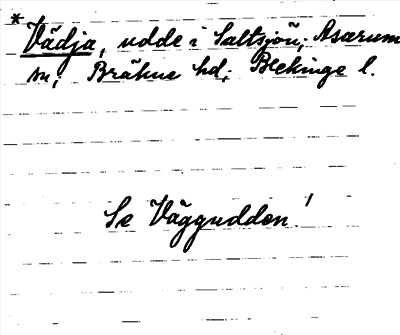 *Vädja, udde i Saltsjön; Asarum
sn; Bräkne hd; Blekinge l.
Se Väggudden!